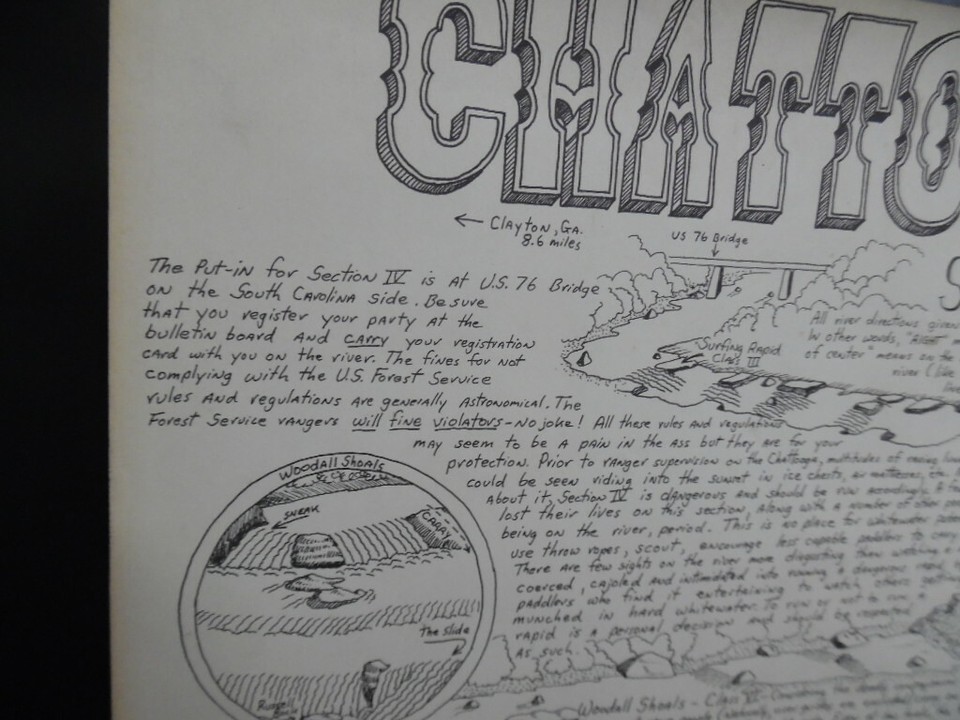 CHATTO
← Clayton, GA.
8.6 miles
US 76 Bridge
S
The Put-in for Section IV is at U.S. 76 Bridge
on the South Carolina side. Be sure
that you register your party at the
bulletin board and carry your registration
card with you on the river. The fines for not
complying with the U.S. Forest Service
rules and regulations are generally astronomical. The
Forest Service rangers will fine violators - no joke! All these rules and regulations
may seem to be a pain in the ass but they are for your
protection. Prior to ranger supervision on the Chattooga, multitudes of
could be seen riding into the sunset in ice chests, air mattresses, etc.
about it, Section IV is dangerous and should be run accordingly. A
lost their lives on this section, along with a number of other
being on the river, period. This is no place for whitewater
use throw ropes, scout, encourage less capable paddlers to carry
There are few sights on the river more disgusting than watching a
coerced, cajoled and intimidated into running a dangerous
paddlers who find it entertaining to watch others getting
munched in hard whitewater. To run or not to run a
rapid is a personal decision and should be respected
as such.
Surfing Rapid
Class III
All river directions given
In other words, "RIGHT
of center" means on the
river (like
Woodall Shoals
SNEAK
CARRY
The Slide
Woodall Shoals - Class VI -